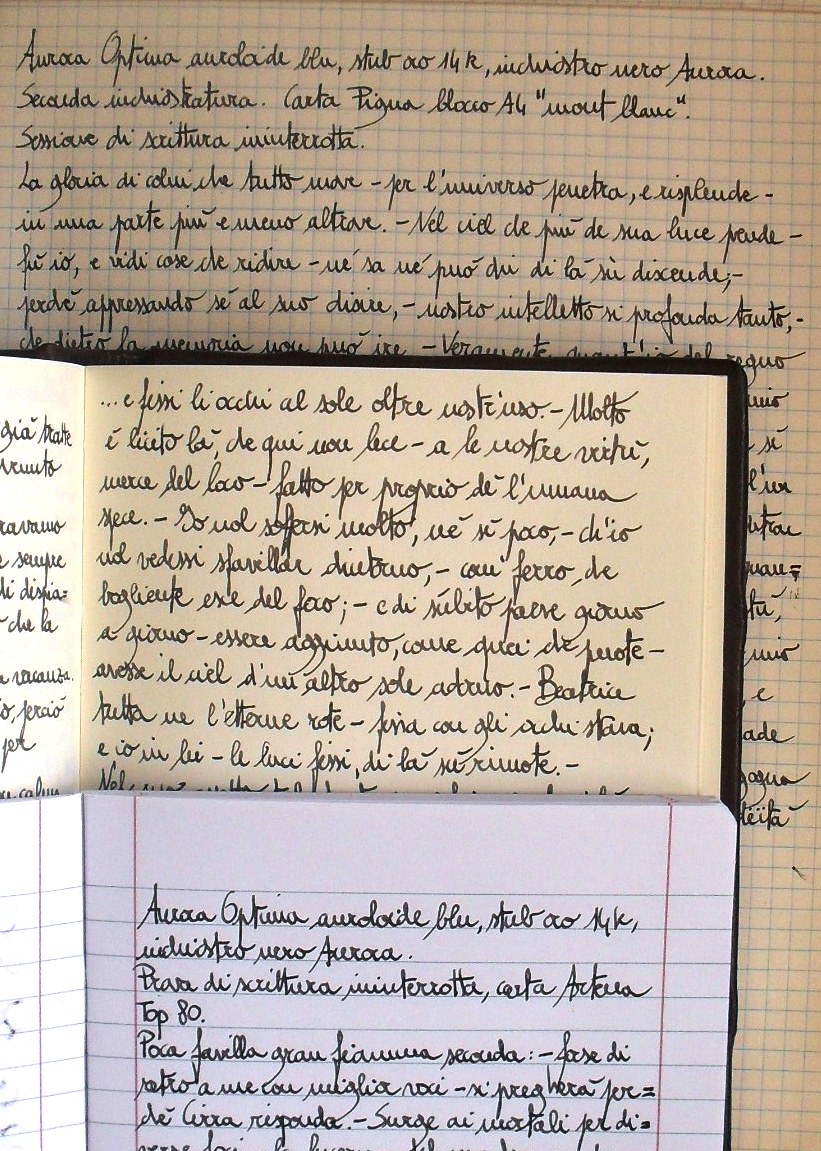 Aurora Optima auroloide blu, stub oro 14k, inchiostro nero Aurora.
Seconda inchiostratura. Carta Pigna blocco A4 "mont blanc".
Sessione di scrittura ininterrotta.
La gloria di colui che tutto move – per l'universo penetra, e risplende –
in una parte più e meno altrove. – Nel ciel che più de sua luce prende –
fu' io, e vidi cose che ridire – né sa né può chi di là sù discende; –
perché appressando sé al suo disire, – nostro intelletto si profonda tanto, –
che dietro la memoria non può ire. – Veramente quant'io del regno
già tratte
...e fissi li occhi al sole oltre nostr'uso. – Molto
è licito là, che qui non lece – a le nostre virtù,
mercé del loco – fatto per proprio de l'umana
spece. – Io nol soffersi molto, né sì poco, – ch'io
nol vedessi sfavillar dintorno, – com' ferro che
bogliente esce del foco; – e di sùbito parve giorno
a giorno – essere aggiunto, come quei che puote –
avesse il ciel d'un altro sole adorno. – Beatrice
tutta ne l'etterne rote – fissa con gli occhi stava;
e io in lei – le luci fissi, di là sù rimote. –
sempre
che la
vacanza.
perciò
per
sì
l'un
e
Aurora Optima auroloide blu, stub oro 14k,
inchiostro nero Aurora.
Prova di scrittura ininterrotta, carta Artena
Top 80.
Poca favilla gran fiamma seconda: – forse di
retro a me con miglior voci – si pregherà per=
ché Cirra risponda. – Surge ai mortali per di=